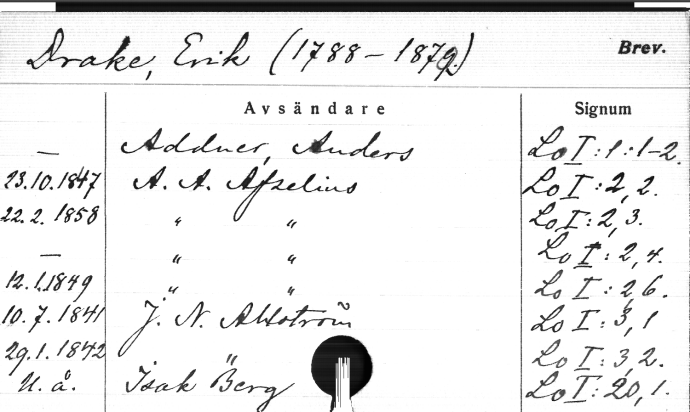 Drake, Erik (1788-1870) Brev.
Avsändare Signum
— Addner, Anders Lo I:1:1-2.
23.10.1847 A. A. Afzelius Lo I:2, 2.
22.2.1858 " " Lo I:2, 3.
— " " Lo I:2, 4.
12.1.1849 " " Lo I:2, 6.
10.7.1841 J. N. Ahlström Lo I:3, 1
29.1.1842 " Lo I:3, 2.
U. å. Isak Berg Lo I:20, 1.